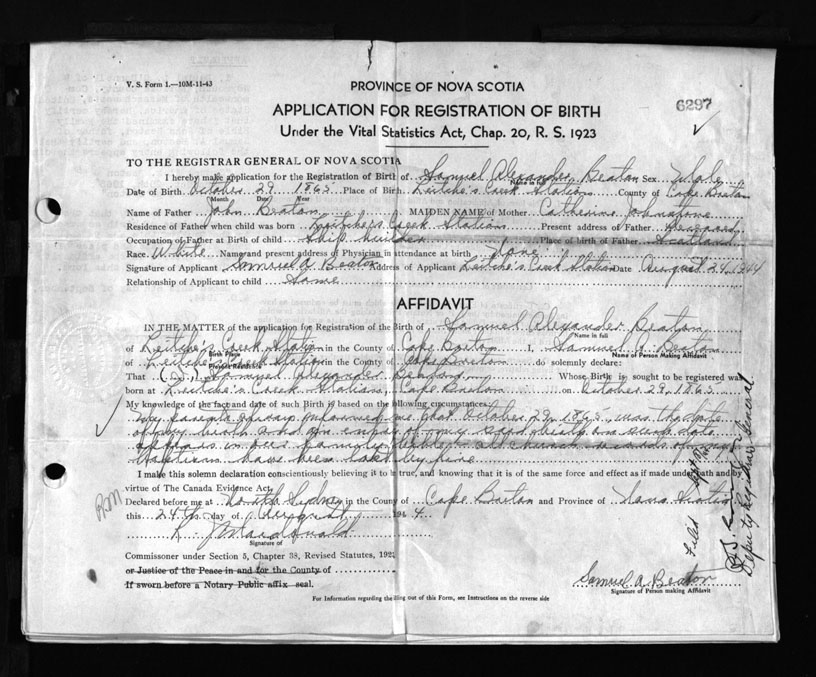 V. S. Form 1.—10M-11-43
PROVINCE OF NOVA SCOTIA
6297
APPLICATION FOR REGISTRATION OF BIRTH
Under the Vital Statistics Act, Chap. 20, R. S. 1923
TO THE REGISTRAR GENERAL OF NOVA SCOTIA
I hereby make application for the Registration of Birth of Samuel Alexander Beaton Sex Male
Name in full
Date of Birth October 29 1865 Place of Birth Leitche's Creek Station County of Cape Breton
Month Day Year
Name of Father John Beaton MAIDEN NAME of Mother Catherine Johnstone
Residence of Father when child was born Leitche's Creek Station Present address of Father Deceased
Occupation of Father at Birth of child Ship builder Place of Birth of Father Scotland
Race White Name and present address of Physician in attendance at birth None
Signature of Applicant Samuel A Beaton Address of Applicant Leitche's Creek Station Date August 24, 1944
Relationship of Applicant to child Same
AFFIDAVIT
IN THE MATTER of the application for Registration of the Birth of Samuel Alexander Beaton
Name in full
of Leitche's Creek Station in the County of Cape Breton I, Samuel A Beaton
Birth Place Name of Person Making Affidavit
of Leitche's Creek Station in the County of Cape Breton do solemnly declare:
Present Residence
That Samuel Alexander Beaton Whose Birth is sought to be registered was
born at Leitche's Creek Station, Cape Breton on October 29, 1865
My knowledge of the fact and date of such Birth is based on the following circumstances:
My parents always informed me that October 29, 1865, was the date
of my birth and an entry of my said birth and such date
appears in our family bible, all church records of my
baptism have been lost by fire
I make this solemn declaration conscientiously believing it to be true, and knowing that it is of the same force and effect as if made under oath and by
virtue of The Canada Evidence Act.
Declared before me at North Sydney in the County of Cape Breton and Province of Nova Scotia
this 24th day of August 1944.
RM
K. J. Macdonald
Signature of
Commissoner under Section 5, Chapter 38, Revised Statutes, 1923
or Justice of the Peace in and for the County of
If sworn before a Notary Public affix seal.
Samuel A. Beaton
Signature of Person making Affidavit
For Information regarding the filling out of this Form, see Instructions on the reverse side
Filed
Deputy Registrar General